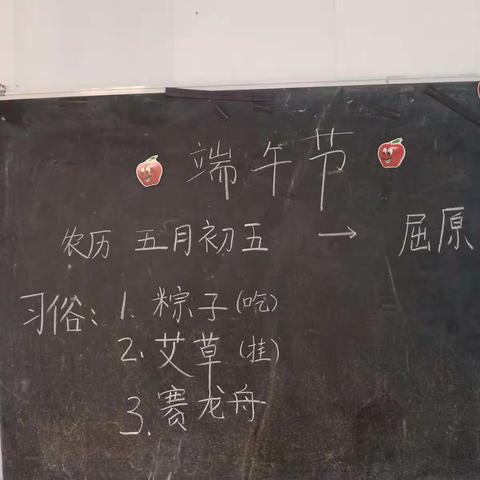 端午节
农历 五月初五 → 屈原
习俗：1. 粽子(吃)
2. 艾草(挂)
3. 赛龙舟